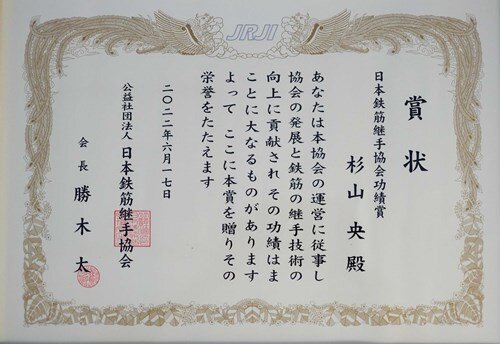 JRJI
賞状
日本鉄筋継手協会功績賞
杉山 央 殿
あなたは本協会の運営に従事し
協会の発展と鉄筋の継手技術の
向上に貢献され その功績はま
ことに大なるものがあります
よって ここに本賞を贈りその
栄誉をたたえます
二〇二二年六月一七日
公益社団法人 日本鉄筋継手協会
会長 勝木 太